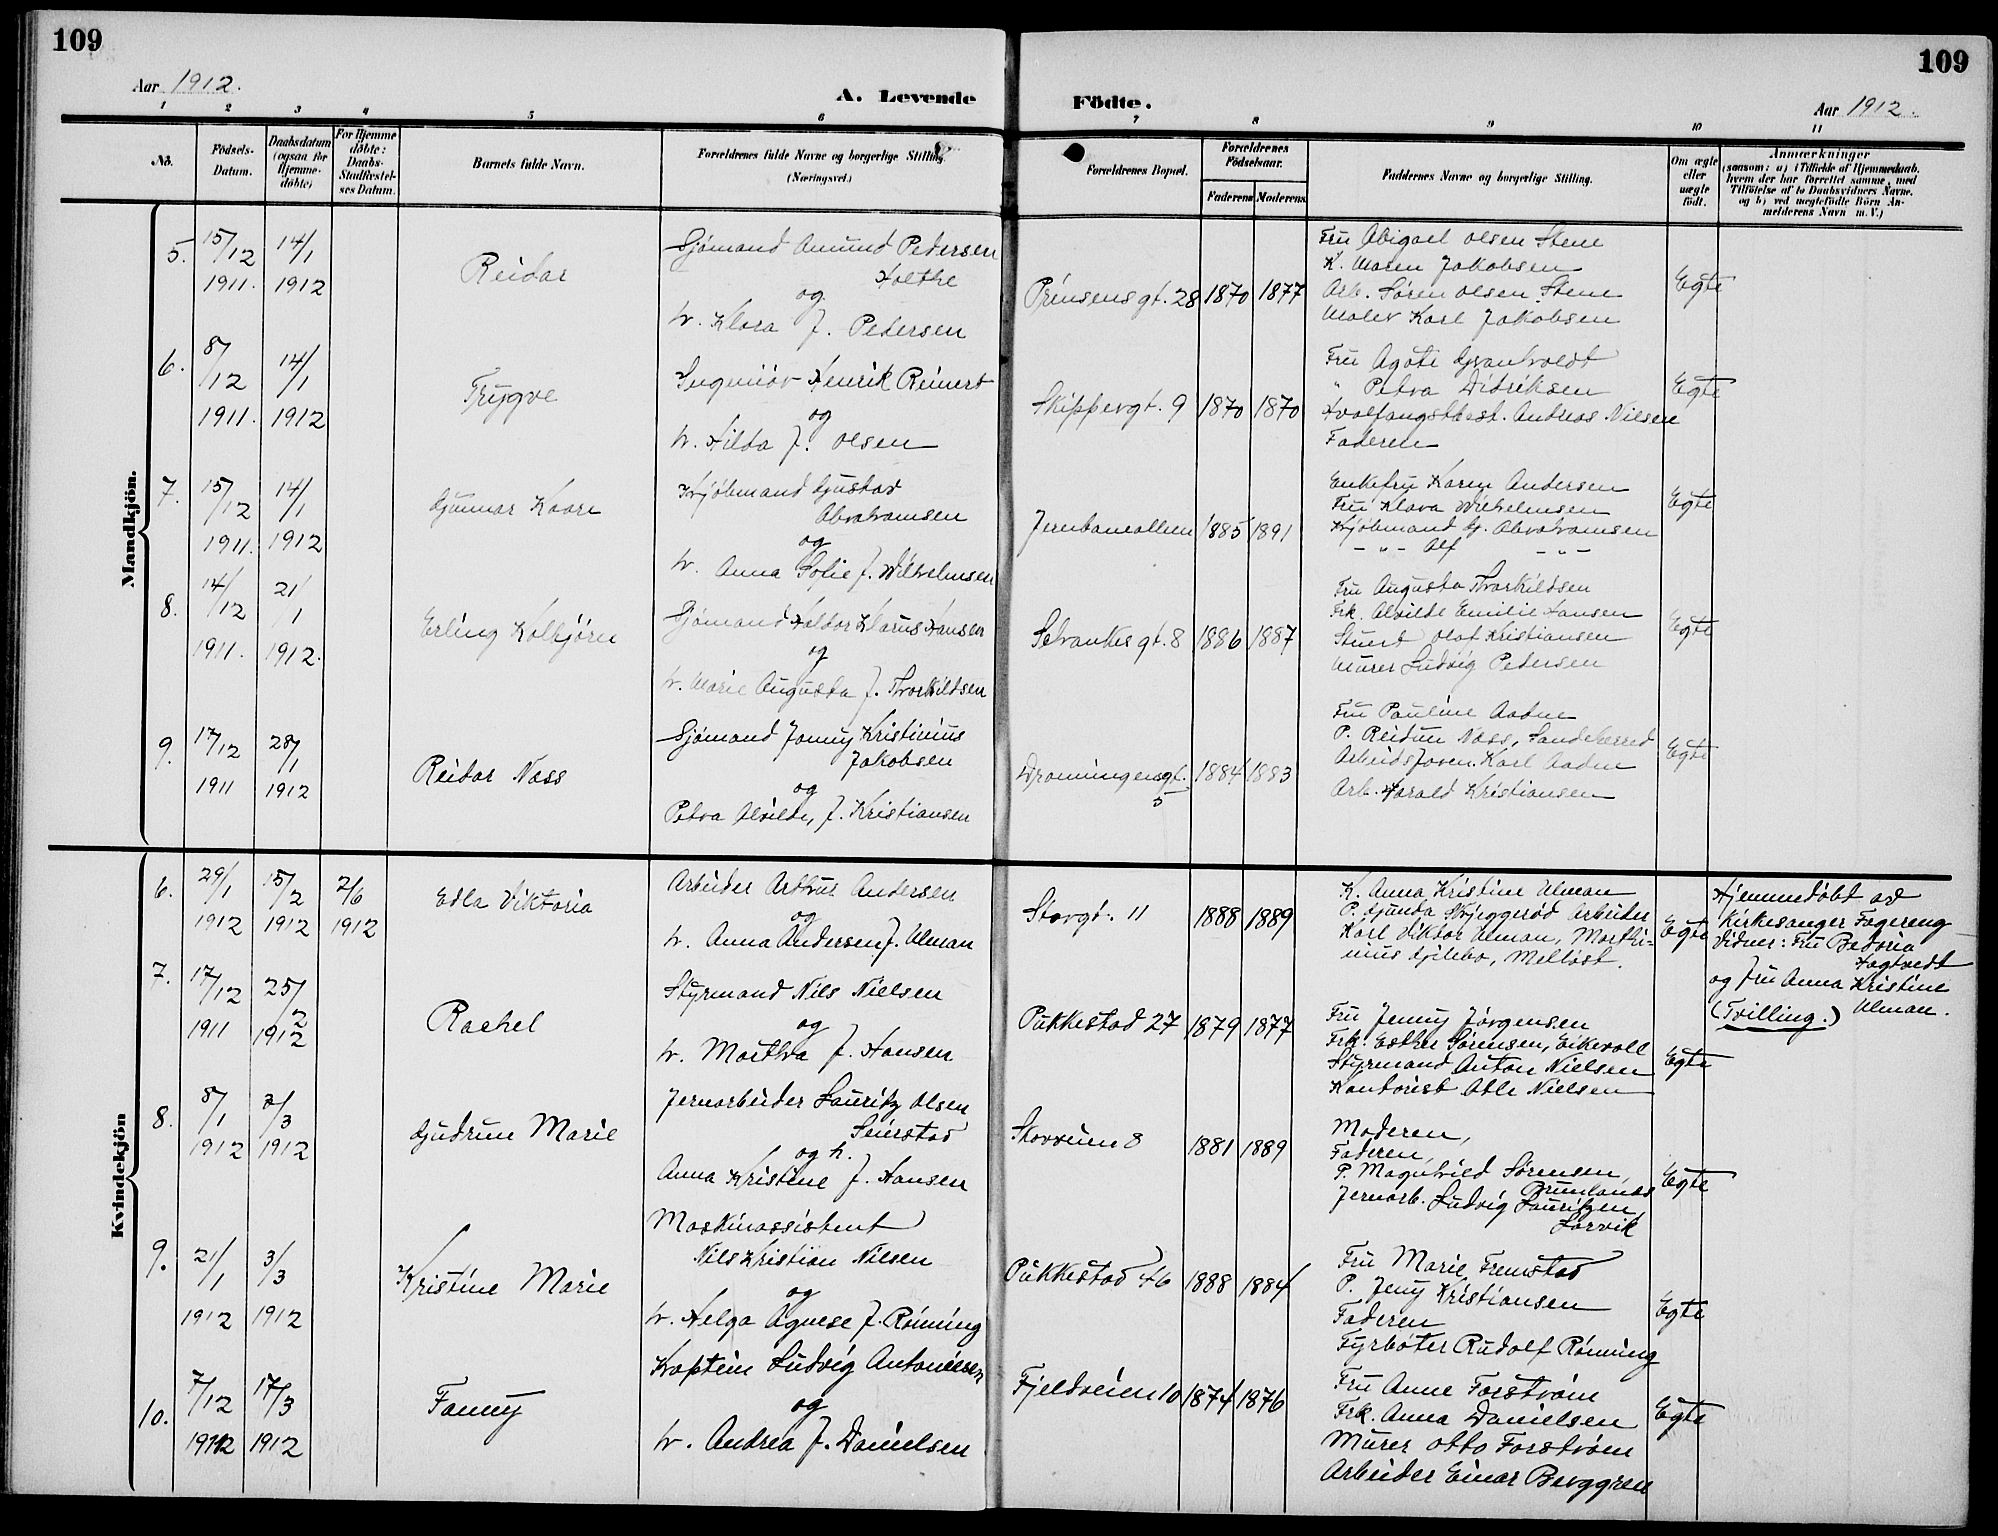 109
109
Aar 1912.
A. Levende
Födte.
Aar 1912.
1 2 3 4 5 6 7 8 9 10 11
No.
Födsels-Datum.
Daabsdatum (ogsaa for Hjemme-döbte)
For Hjemme döbte: Daabs-Stadfæstel-ses Datum.
Barnets fulde Navn.
Forældrenes fulde Navne og borgerlige Stilling. (Næringsvei.)
Forældrenes Bopæl.
Forældrenes Födselsaar.
Faderens Moderens
Faddernes Navne og borgerlige Stilling.
Om ægte eller uægte födt.
Anmærkninger
(saasom: a) i Tilfælde af Hjemmedaab,
hvem der har forrettet samme, med
Tilföielse af to Daabsvidners Navne,
og b) ved uægtefödte Börn An-
melderens Navn m. V.)
Mandkjön.
5.
15/12 1911.
14/1 1912
Reidar
Sjömand Amund Pedersen
Holthe
og
h. Klara f. Pedersen
Prinsensgt. 28
1870
1877
Fru Abigael Olsen Stene
K. Maren Jakobsen
Arb. Sören Olsen Stene
Maler Karl Jakobsen
Egte
6.
8/12 1911.
14/1 1912
Trygve
Ingeniör Henrik Reinert
og
h. Hilda f. Olsen
Skippergt. 9
1870
1870
Fru Agate Granholdt
" Petra Didriksen
Hvalfangstbest. Andreas Nilsen
Faderen
Egte
7.
15/12 1911.
14/1 1912
Gunnar Kaare
Kjöbmand Gustav
Abrahamsen
og
h. Anna Sofie f. Wilhelmsen
Jernbanealleen
1885
1891
Enkefru Karen Andersen
Fru Klara Wilhelmsen
Kjöbmand G. Abrahamsen
- " - Alf - " -
Egte
8.
14/12 1911.
21/1 1912.
Erling Kolbjörn
Sjömand Haldor Klarus Hansen
og
h. Marie Augusta f. Thorkildsen
Selvaakes gt. 8
1886
1887
Fru Augusta Thorkildsen
Frk. Alvilde Emilie Hansen
Stuert Olaf Kristiansen
Murer Ludvig Pedersen
Egte
9.
17/12 1911
28/1 1912
Reidar Nass
Sjömand Jonny Kristinius
Jakobsen
og
Petra Alvilde, f. Kristiansen
Dronningensgt. 5
1884
1883
Fru Pauline Aadne
P. Reidun Nass, Sandeherred
Arbeidsforen. Karl Aadne
Arb. Harald Kristiansen
Egte
Kvindekjön
6.
29/1 1912
15/2 1912
2/6 1912
Edla Viktoria
Arbeider Arthur Andersen
og
h. Anna Andersen f. Ulman
Storgt. 11
1888
1889
K. Anna Kristine Ulman
P. Gunda Skjeggeröd Arbeider
Karl Viktor Ulman, Marthi-
nius Gilebo, Melløst.
Egte
Hjemmedöbt av
Kirkesanger Fagereng
Vidner: Fru Bedoria
Hagtvedt
og Fru Anna Kristine
Ulman.
(Tvilling.)
7.
17/12 1911
25/2 1912
Rachel
Styrmand Nils Nielsen
og
h. Martha f. Hansen
Pukkestad 27
1879
1877
Fru Jenny Jörgensen
Frk. Esther Sörensen, Eikevoll
Styrmand Anton Nielsen
Kontorist Atle Nielsen
Egte
8.
8/1 1912
3/3 1912
Gudrun Marie
Jernarbeider Lauritz Olsen
Seierstad
og h.
Anna Kristine f. Hansen
Skovveien 8
1881
1889
Moderen,
Faderen,
P. Magnhild Sörensen,
Brunlanes
Jernarb. Ludvig Lauritzen
Larvik
Egte
9.
21/1 1912
3/3 1912
Kristine Marie
Maskinassistent
Nils Kristian Nilsen
og
h. Helga Agnese f. Rönning
Pukkestad 46
1888
1884
Fru Marie Fremstad
P. Jeny Kristiansen
Faderen
Fyrböter Rudolf Rönning
Egte
10.
7/12 1912
17/3 1912
Fanny
Kaptein Ludvig Antonisen
og
h. Andrea f. Danielsen
Fjeldveien 10
1874
1876
Fru Anne Forström
Frk. Anna Danielsen
Murer Otto Forström
Arbeider Einar Berggren
Egte